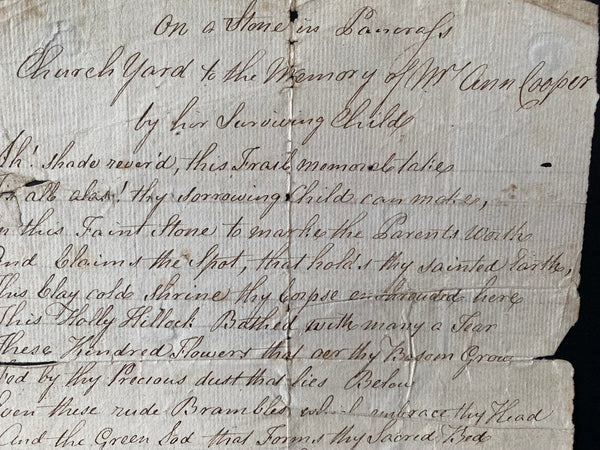 On a Stone in Pancrass
Church Yard to the Memory of Mrs Ann Cooper
by her Surviving Child
Ah! shade rever'd, this Frail memorel take
s all alas! thy sorrowing Child can make,
n this Faint Stone to mark the Parents Worth
nd Claims the Spot, that hold's thy sainted Earth,
his Clay cold shrine thy Corpse enshrouded here
This Holly Hillock Bathed with many a Tear
These Kindred Flowers that oer thy Bosom Grow
ed by thy Precious dust that lies Below
ven these rude Brambles embrace thy Head
And the Green Sod that Forms thy Sacred Bed